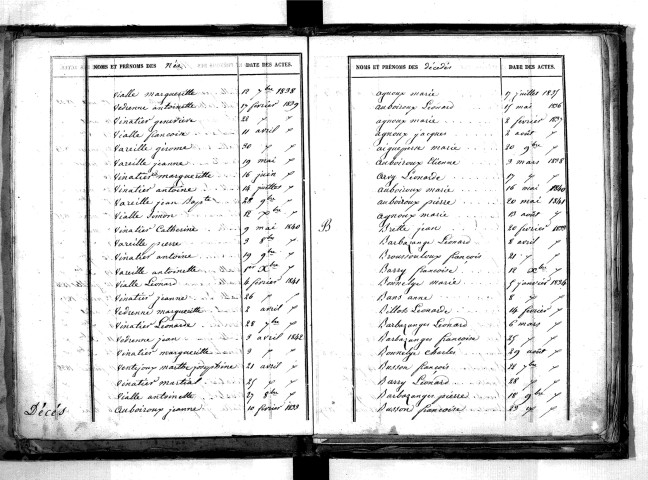 NOMS ET PRÉNOMS DES Nés DATE DES ACTES.
Vialle margueritte 12 7bre 1838
Vedrenne antoinette 17 fevrier 1839
Vinatier geneviève 22 "
Vialle francoise 11 avril "
Vareille girome 30 " "
Vareille jeanne 19 mai "
Vinatier margueritte 16 juin "
Vinatier antoine 14 juillet "
Vareille jean Bapte 28 9bre "
Vialle Simon 12 Xbre "
Vinatier Catherine 9 mai 1840
Vareille pierre 3 8bre "
Vinatier antoine 19 9bre "
Vareille antoinette 1er Xbre "
Vialle Lionard 6 fevrier 1841
Vinatier jeanne 26 " "
Vedrenne margueritte 2 avril "
Vinatier Léonarde 28 7bre "
Vedrenne jean 3 avril 1842
Vinatier margueritte 9 " "
Ventejoux marthe josephine 21 avril "
Vinatier martial 25 " "
Vialle antoinette 27 8bre "
Décés
auboiroux jeanne 10 fevrier 1833
NOMS ET PRÉNOMS DES décédés DATE DES ACTES.
agnoux marie 17 juillet 1835
auboiroux Lionard 15 mai 1836
agnoux marie 2 fevrier 1837
agnoux jacques 2 août "
aigueperse marie 20 9bre "
auboiroux Etienne 3 mars 1838
Arvy Léonarde 17 " "
auboiroux marie 16 mai 1840
auboiroux pierre 20 mai 1841
agnoux marie 13 août "
B
Brette jean 20 fevrier 1833
Barbazange Lionard 8 avril "
Broussouloux françois 21 " "
Barry francoise 12 Xbre "
Bonnelye marie 5 janvier 1834
Bans anne 8 " "
Billot Léonarde 14 fevrier "
Barbazanges Léonard 6 mars "
Barbazanges francoise 25 " "
Bonnelye charles 29 août "
Busson françois 21 7bre "
Barry Léonard 28 " "
Barbazanges pierre 18 9bre "
Busson francoise 29 " "